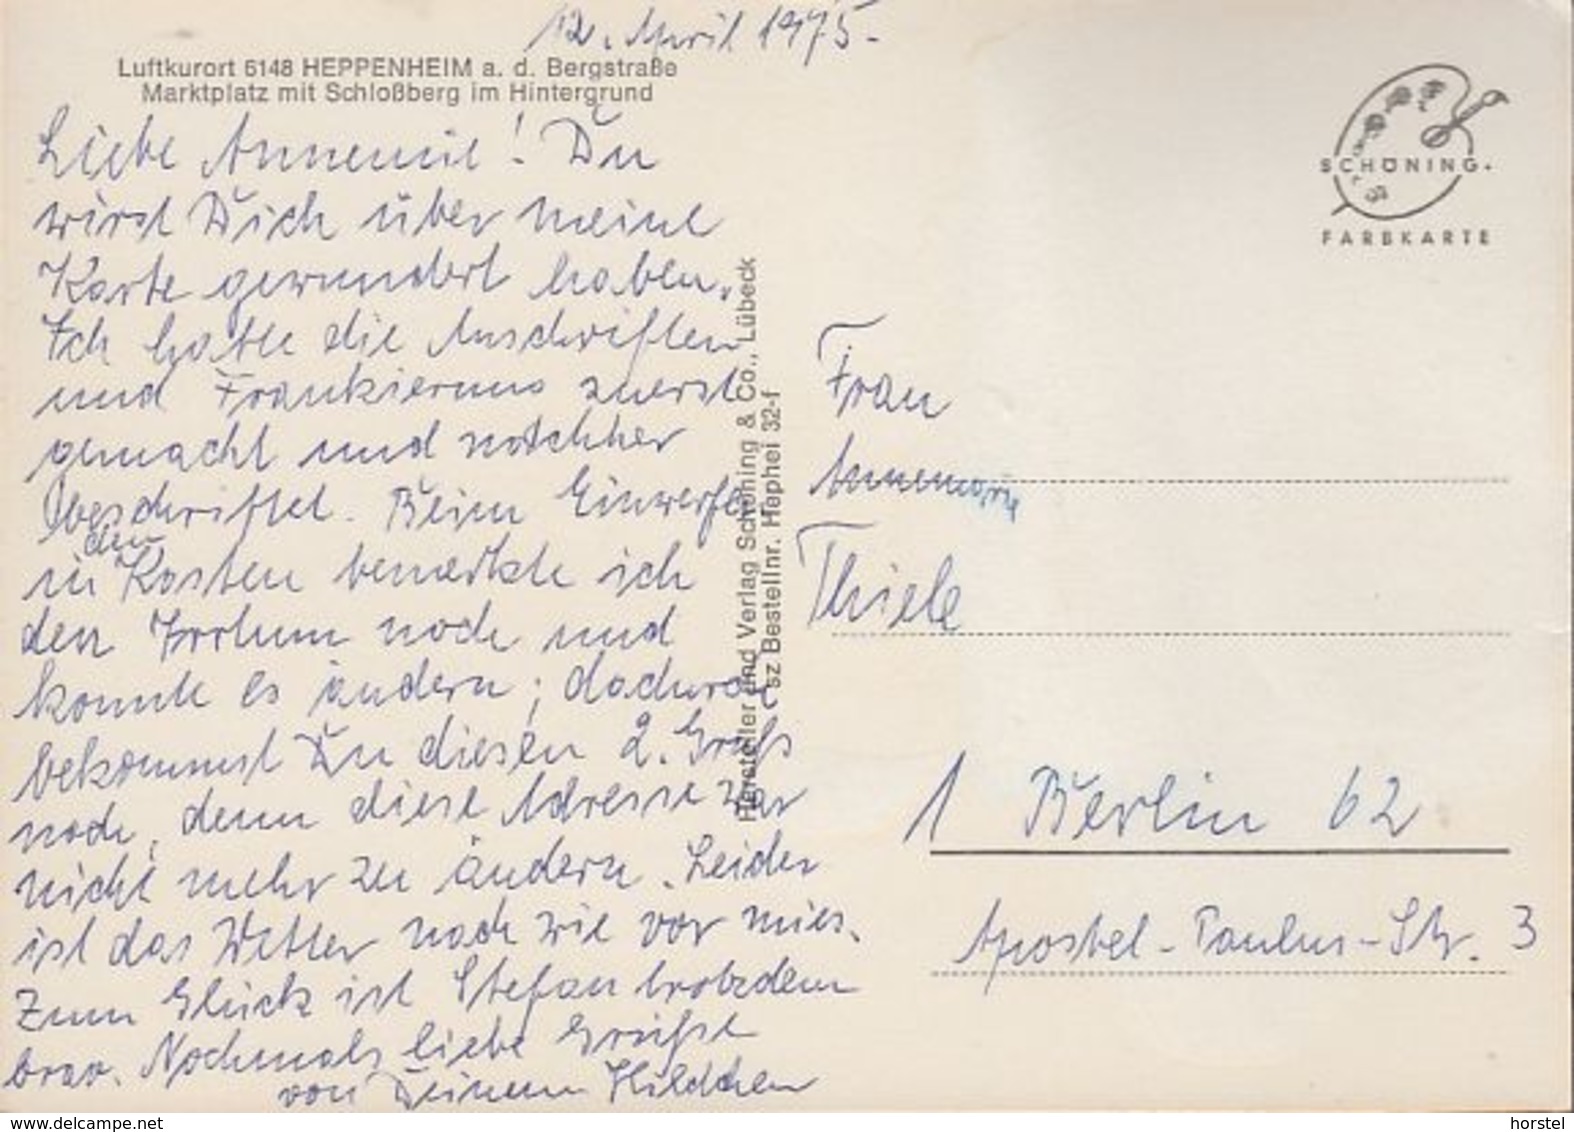 12. April 1975.
Luftkurort 6148 HEPPENHEIM a. d. Bergstraße
Marktplatz mit Schloßberg im Hintergrund
Liebe Annemie! Du
wirst Dich über meine
Karte gewundert haben.
Ich hatte die Anschriften
und Frankierung zuerst
gemacht und nachher
beschriftet. Beim Einwerfen
den
in Kasten bemerkte ich
den Irrtum noch und
konnte es ändern; dadurch
bekommst Du diesen 2. Gruß
noch, denn diese Adresse war
nicht mehr zu ändern. Leider
ist das Wetter nach wie vor mies.
Zum Glück ist Stefan trotzdem
brav. Nochmals liebe Grüße
von Deinem Hildchen
Hersteller und Verlag Schöning & Co., Lübeck
sz Bestellnr. Hephei 32-f
SCHÖNING.
FARBKARTE
Frau
Annemarie
Thiele
1 Berlin 62
Apostel-Paulus-Str. 3
www.delcampe.net
horstel